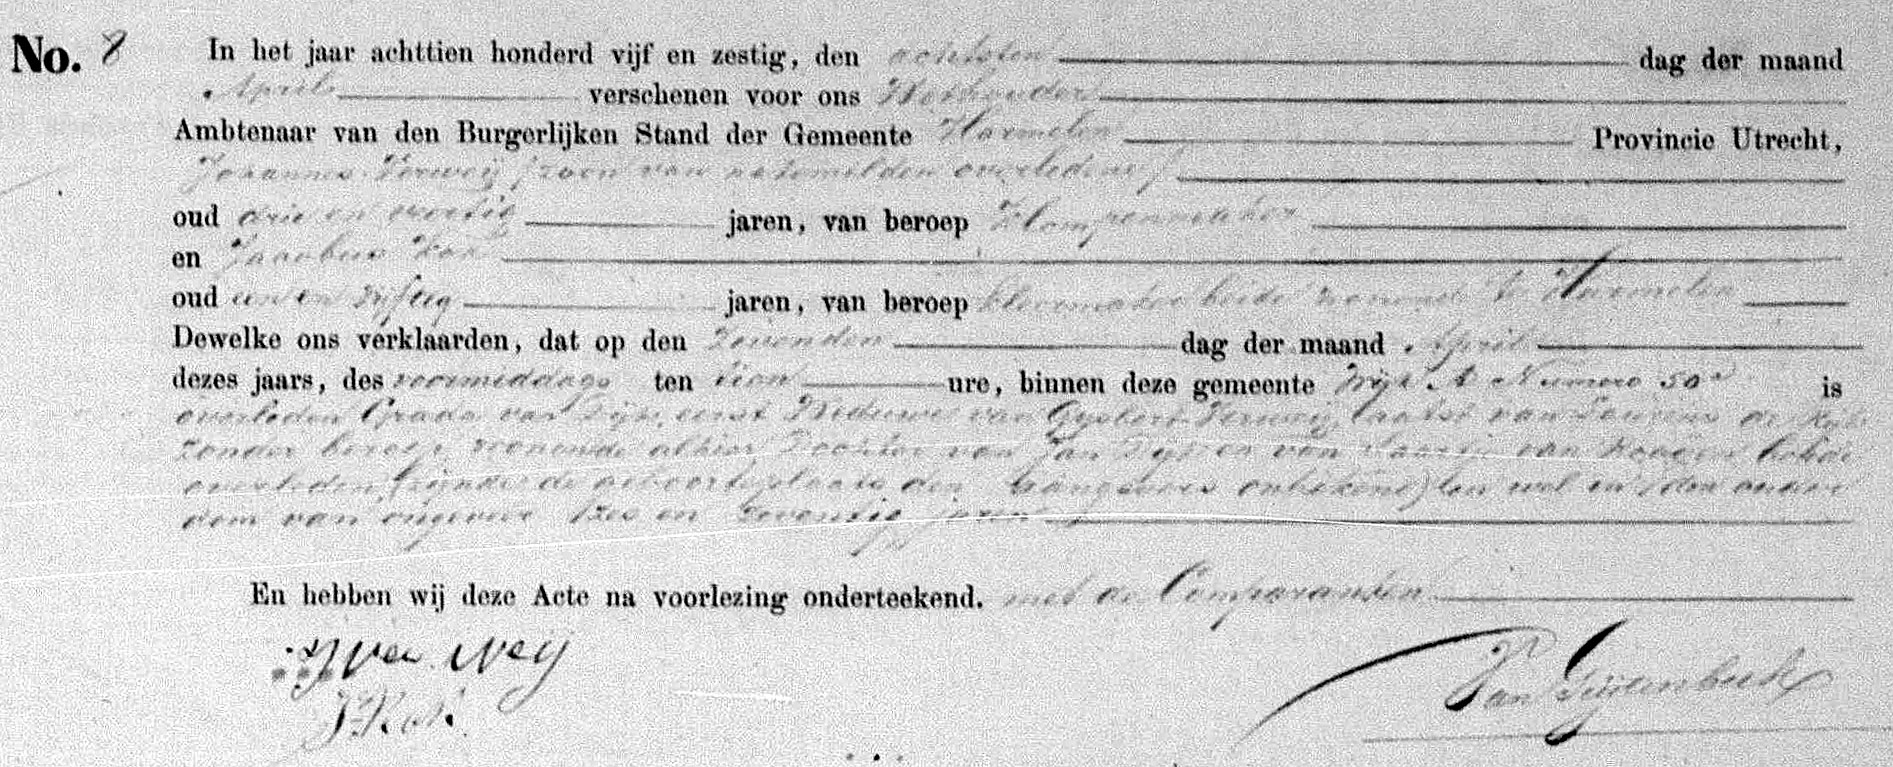 No. 8 In het jaar achttien honderd vijf en zestig, den achtsten dag der maand
April verschenen voor ons Wethouder
Ambtenaar van den Burgerlijken Stand der Gemeente Harmelen Provincie Utrecht,
Johannes Verweij (zoon van natemelden overledene)
oud drie en veertig jaren, van beroep Klompenmaker
en Jacobus Kok
oud een en vijftig jaren, van beroep kleermaker beide wonende te Harmelen
Dewelke ons verklaarden, dat op den zevenden dag der maand April
dezes jaars, des voormiddags ten tien ure, binnen deze gemeente Wijk A Numero 50a is
overleden Grada van Dijk, eerst Weduwe van Gysbert Verweij, laatst van de
zonder beroep wonende alhier Dochter van Jan Dijk en van van beide
overleden, (zijnde de geboorteplaats den onbekend) ten wel in den ouder
dom van ongeveer zes en zeventig jaren
En hebben wij deze Acte na voorlezing onderteekend. met de Comparanten
J Ver Weij
J. Kok